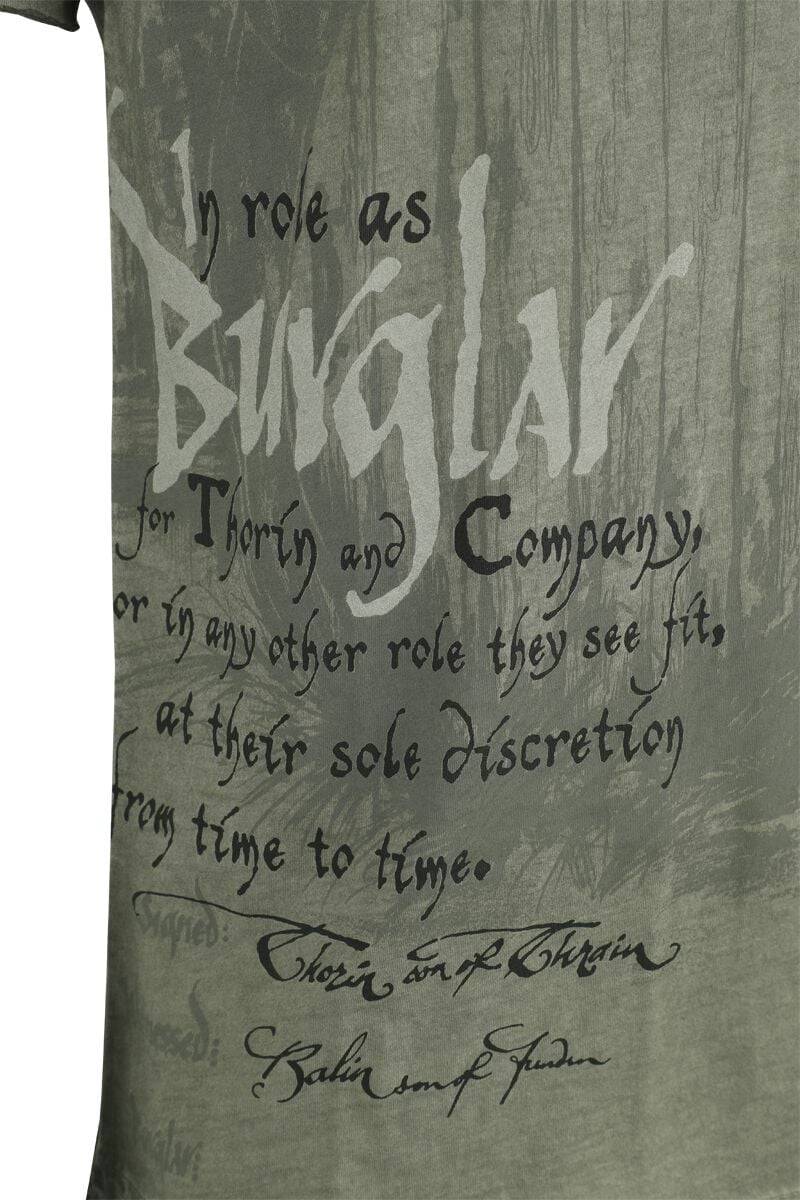 In role as
Burglar
for Thorin and Company,
or in any other role they see fit,
at their sole discretion
from time to time.
Signed: Thorin son of Thrain
Balin son of Fundin
Burglar: